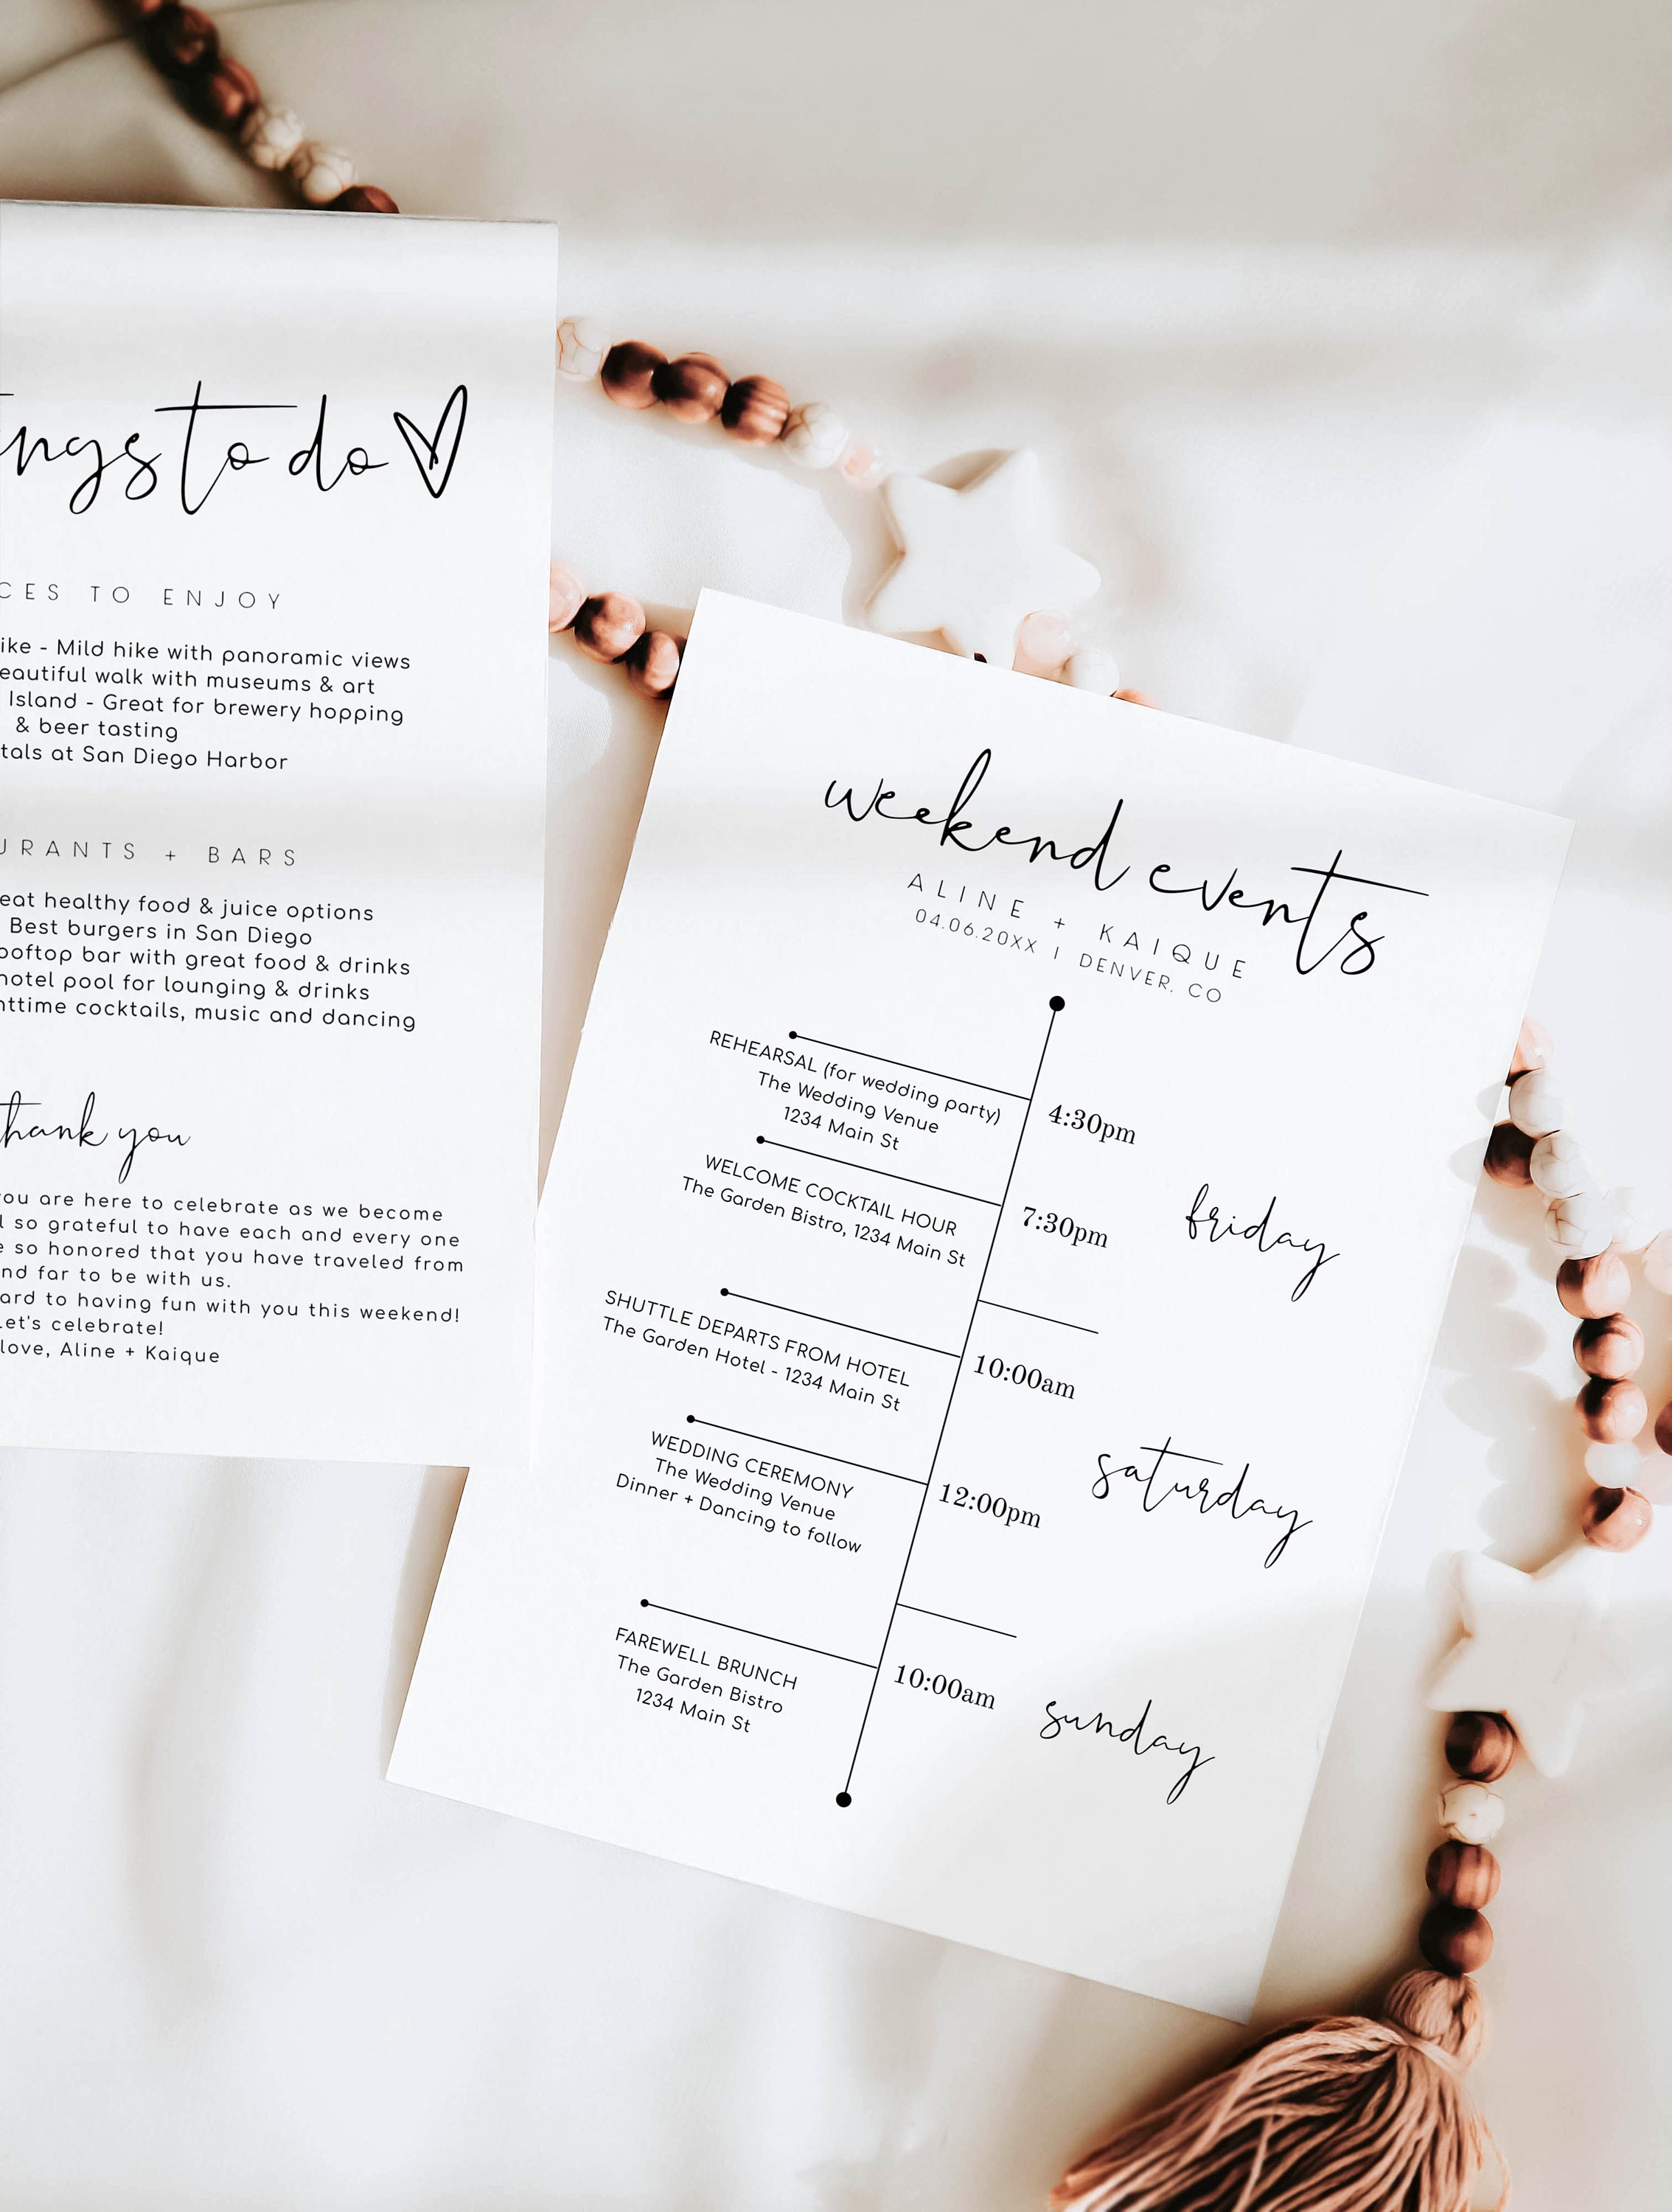 to do
TO ENJOY
- Mild hike with panoramic views
walk with museums & art
Island - Great for brewery hopping
& beer tasting
at San Diego Harbor
+ BARS
healthy food & juice options
Best burgers in San Diego
bar with great food & drinks
hotel pool for lounging & drinks
cocktails, music and dancing
thank you
you are here to celebrate as we become
so grateful to have each and every one
so honored that you have traveled from
and far to be with us.
to having fun with you this weekend!
Let's celebrate!
love, Aline + Kaique
weekend events
ALINE + KAIQUE
04.06.20XX | DENVER, CO
REHEARSAL (for wedding party)
The Wedding Venue
1234 Main St
4:30pm
WELCOME COCKTAIL HOUR
The Garden Bistro, 1234 Main St
7:30pm
friday
SHUTTLE DEPARTS FROM HOTEL
The Garden Hotel - 1234 Main St
10:00am
WEDDING CEREMONY
The Wedding Venue
Dinner + Dancing to follow
12:00pm
saturday
FAREWELL BRUNCH
The Garden Bistro
1234 Main St
10:00am
sunday